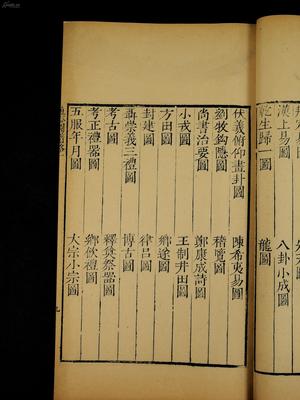 漢上易圖　八卦小成圖
乾生歸一圖
伏羲俯仰畫卦圖　陳希夷易圖
劉牧鉤隱圖　稽覽圖
尚書治要圖　鄭康成詩圖
小戎圖　王制井田圖
方田圖　鄉遂圖
封建圖　律呂圖
聶崇義三禮圖　博古圖
考古圖　釋奠祭器圖
考正禮器圖　鄉飲禮圖
五服年月圖　大宗小宗圖